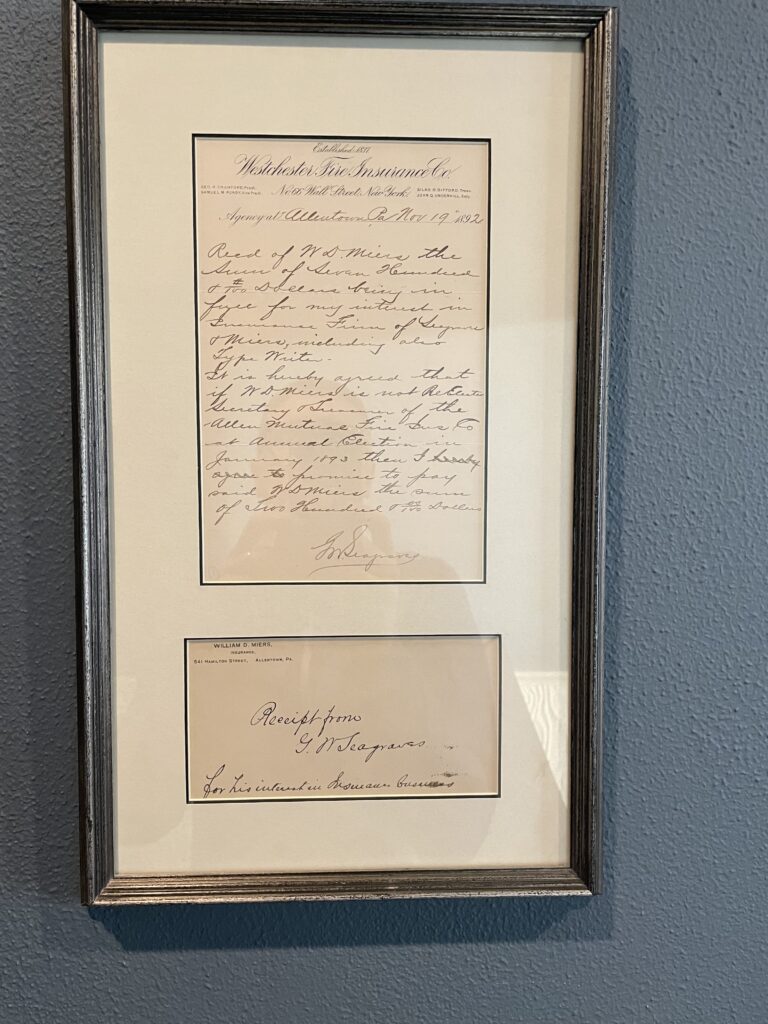 Established 1837
Westchester Fire Insurance Co.
GEO. R. CRAWFORD, Prest.
SAMUEL M. PURDY, Vice Prest.
No 66 Wall Street, New York.
SILAS D. GIFFORD, Treas.
JOHN Q. UNDERHILL, Secy.
Agency at Allentown Pa Nov 19" 1892
Recd of W D. Miers the
Sum of Seven Hundred
& Dollars being in
full for my interest in
Insurance Firm of Seagraves
& Miers, including also
Type Writer.
It is hereby agreed that
if W D. Miers is not ReElected
Secretary & Treasurer of the
Allen Mutual Fire Ins Co
at Annual Election in
January 1893 then I hereby
agree to promise to pay
said W D Miers the sum
of Two Hundred & Dollars
G W Seagraves
WILLIAM D. MIERS,
INSURANCE,
641 HAMILTON STREET, ALLENTOWN, PA.
Receipt from
G. W Seagraves
for his interest in Insurance business